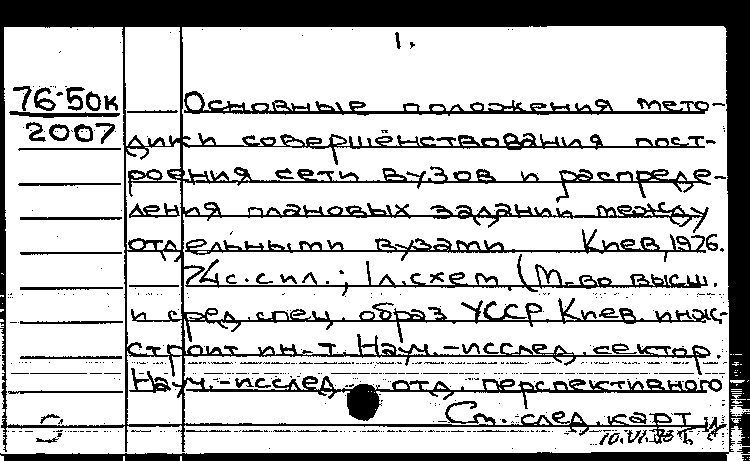 1.
76-50к
2007
Основные положения мето-
дики совершенствования пост-
роения сети вузов и распреде-
ления плановых заданий между
отдельными вузами. Киев, 1976.
74 с. с ил.; 1 л. схем. (М-во высш.
и сред. спец. образ. УССР. Киев. инж.-
строит. ин-т. Науч.-исслед. сектор.
Науч.-исслед. отд. перспективного
См. след. карт